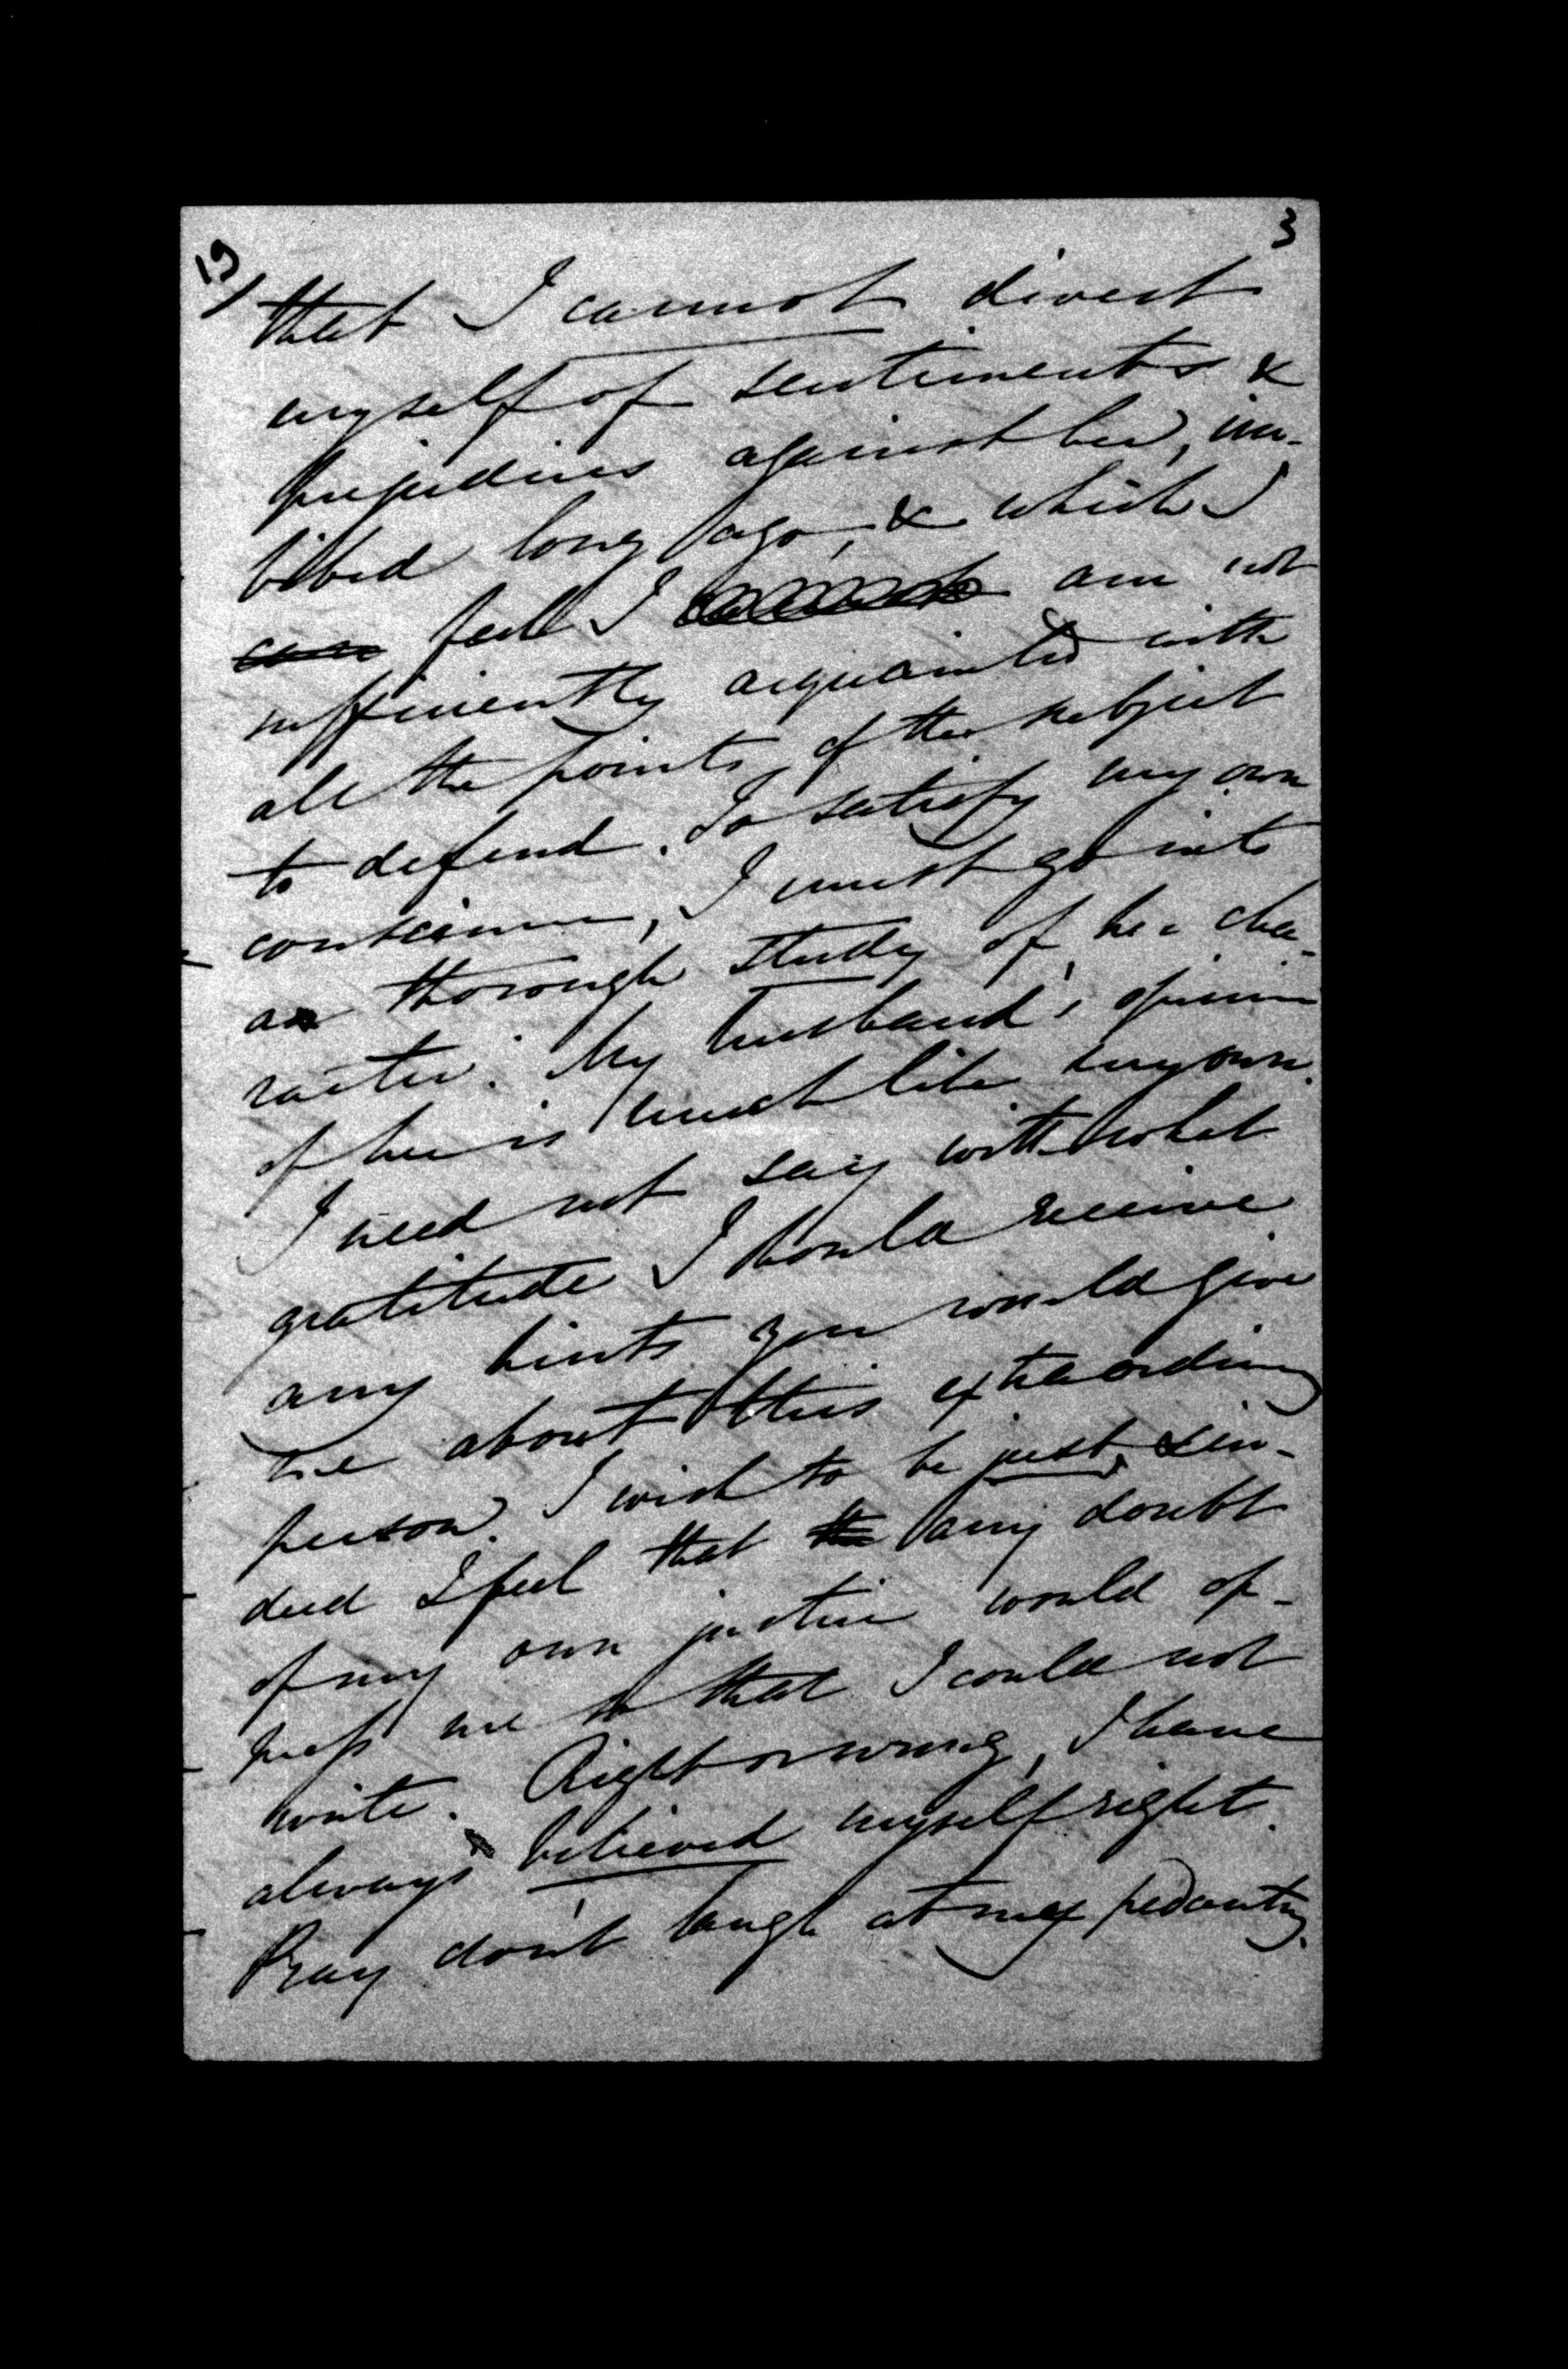 19/ 3
that I cannot divest
myself of sentiments &
prejudices against her, im-
bibed long ago, & which I
can feel I cannot am not
sufficiently acquainted with
all the points of the subject
to defend. To satisfy my own
conscience, I must go into
a thorough study of her cha-
racter. My husband's opinion
of her is much like my own.
I need not say with what
gratitude I should receive
any hints you would give
me about this extraordinary
person. I wish to be just, & in-
deed I feel that the any doubt
of my own justice would op-
press me so that I could not
write. Right or wrong, I have
always believed myself right.
Pray don't laugh at my pedantry.